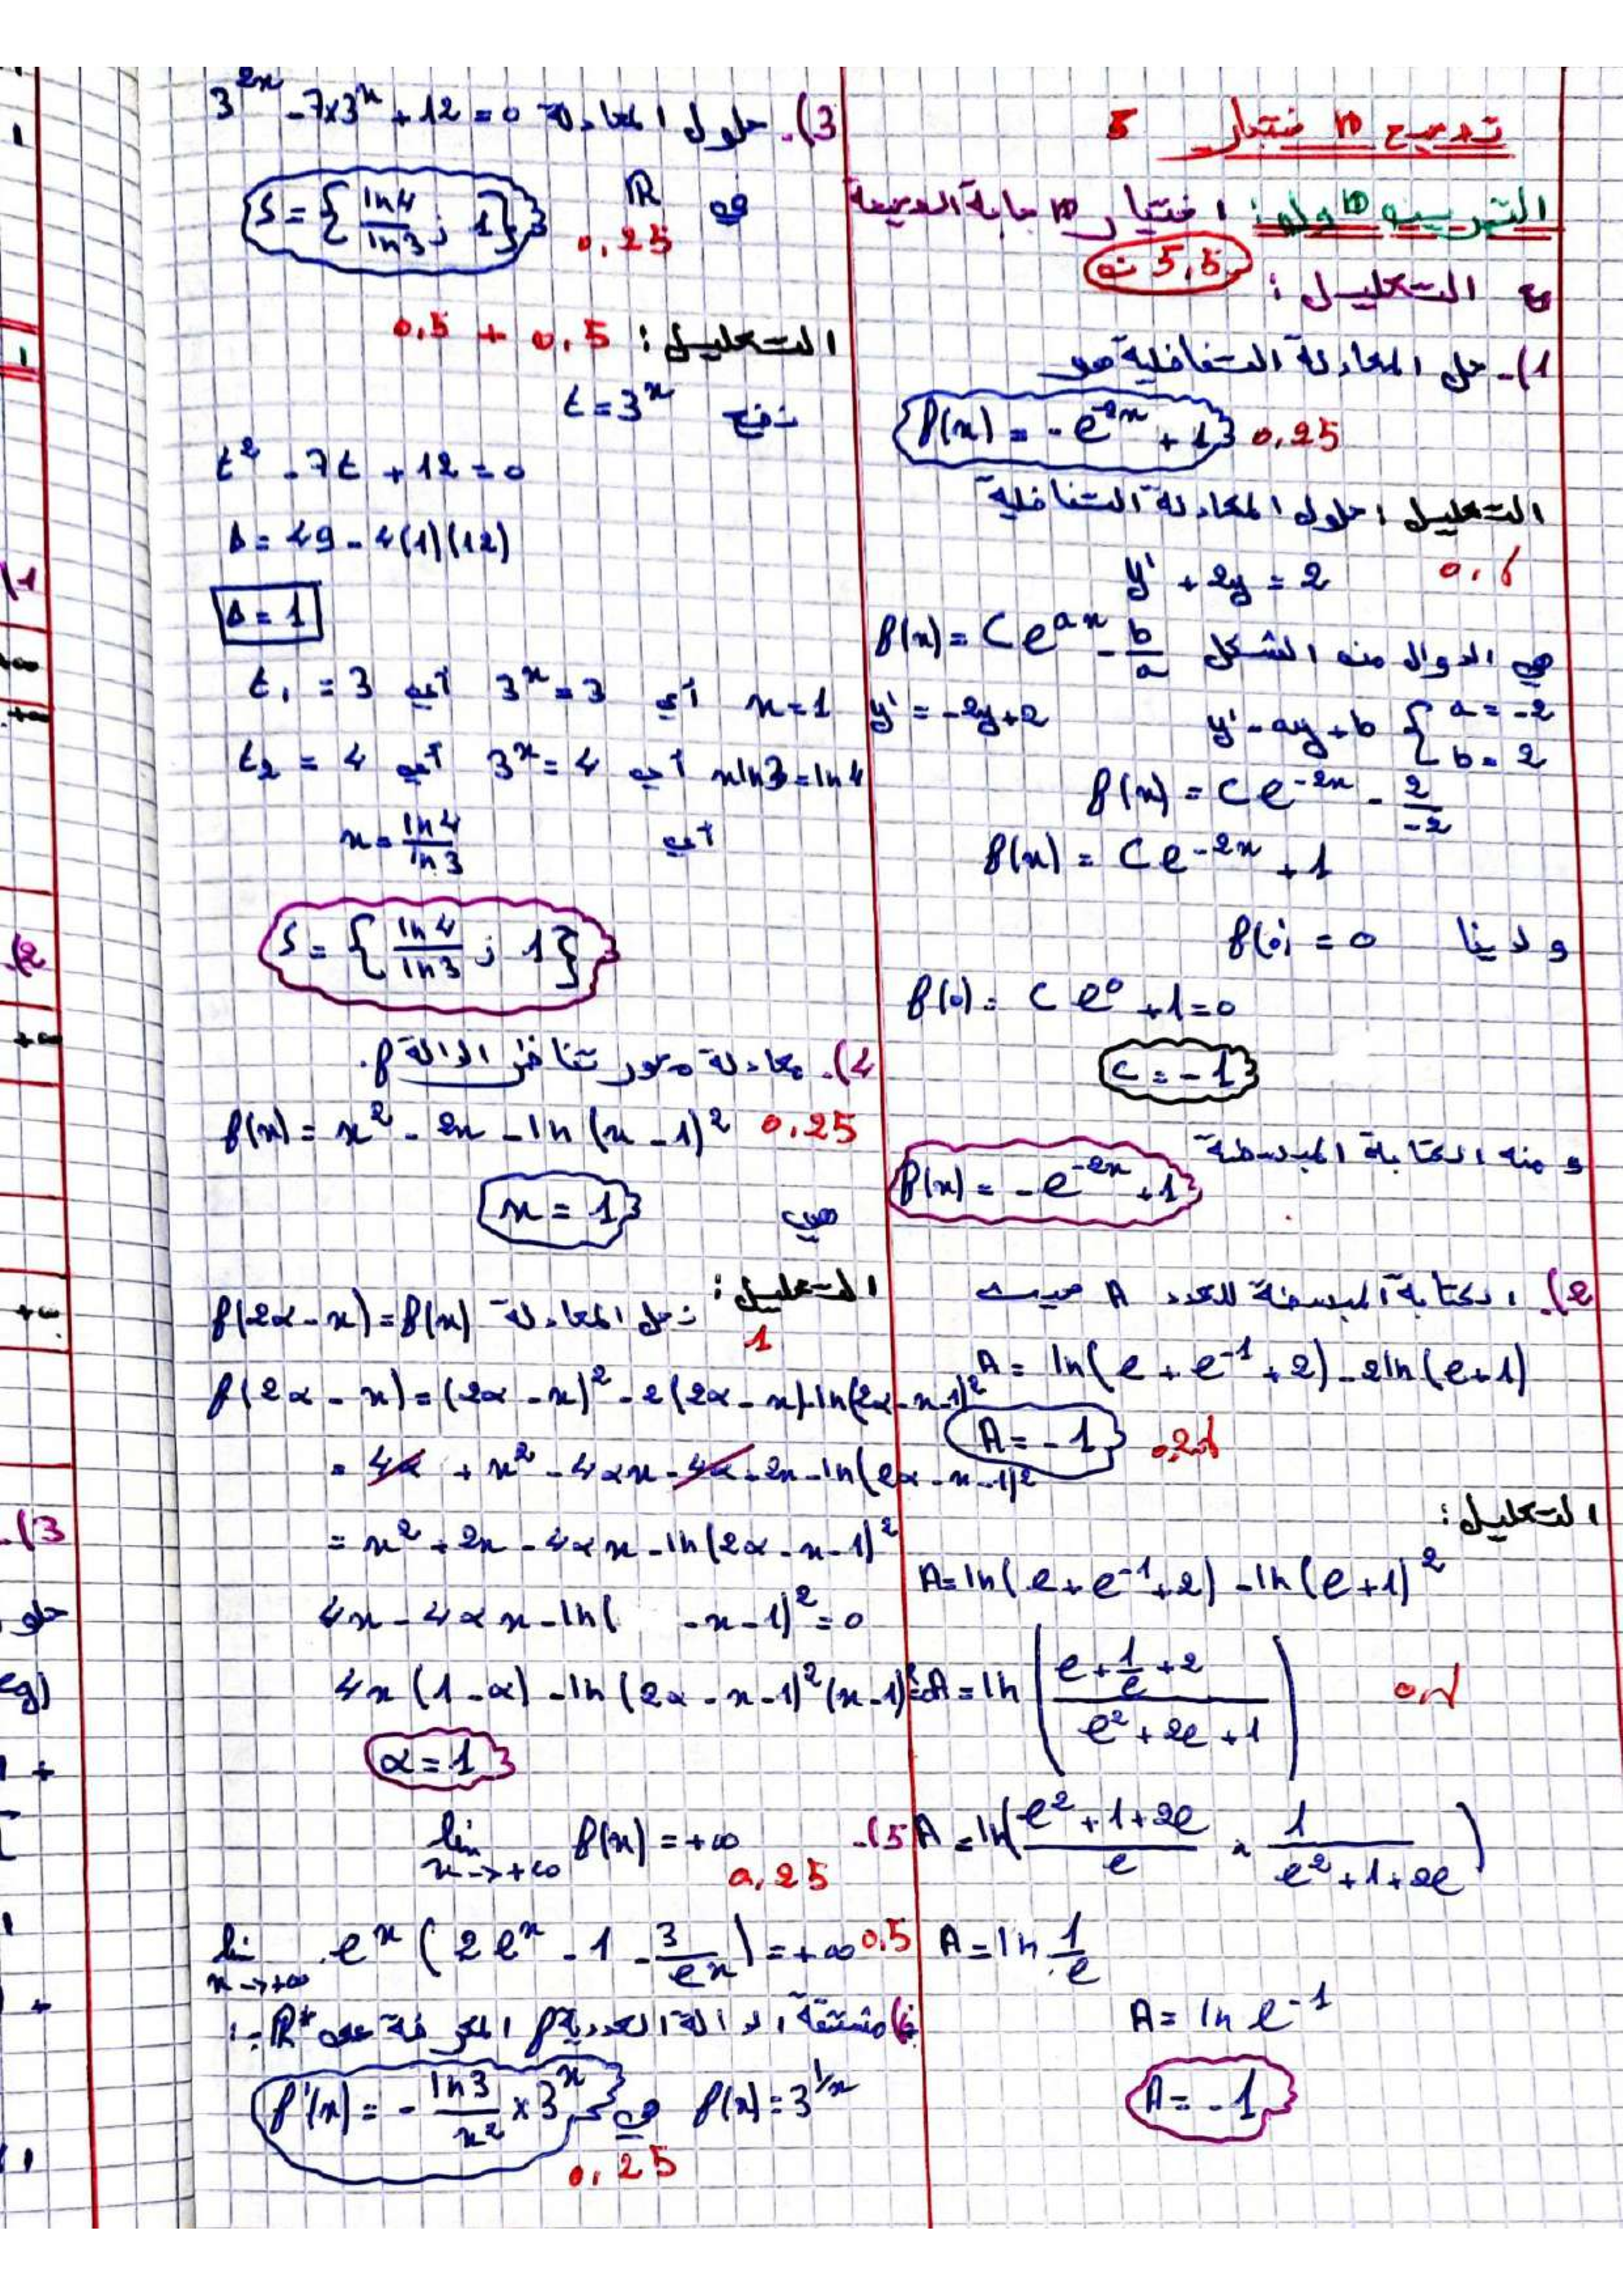 تصحيح الاختبار
التمرين الأول: اختيار الإجابة الصحيحة
مع التعليل: 5,5 ن
1)- حل المعادلة التفاضلية هو
f(x) = -e^{-2x} + 1 0,25
التعليل: حلول المعادلة التفاضلية
y' + 2y = 2
هي الدوال من الشكل f(x) = C e^{ax} - b/a
y' = -2y+2 y' = ay + b { a = -2
b = 2
f(x) = C e^{-2x} - 2/-2
f(x) = C e^{-2x} + 1
و لدينا f(0) = 0
f(0) = C e^0 + 1 = 0
C = -1
و منه الكتابة المبسطة f(x) = -e^{-2x} + 1
2)- الكتابة المبسطة للعدد A حيث
A = ln(e + e^{-1} + 2) - 2ln(e+1)
A = -1
التعليل:
A = ln(e + e^{-1} + 2) - ln(e+1)^2
A = ln( (e + 1/e + 2) / (e^2 + 2e + 1) )
A = ln( (e^2 + 1 + 2e)/e × 1/(e^2 + 1 + 2e) )
A = ln 1/e
A = ln e^{-1}
A = -1
3)- حلول المعادلة 3^{2x} - 7×3^x + 12 = 0
في ℝ S = { ln4/ln3 ; 1 } 0,25
التعليل: 0,5 + 0,5
نضع t = 3^x
t^2 - 7t + 12 = 0
Δ = 49 - 4(1)(12)
Δ = 1
t_1 = 3 أي 3^x = 3 أي x = 1
t_2 = 4 أي 3^x = 4 أي x ln3 = ln4
أي x = ln4/ln3
S = { ln4/ln3 ; 1 }
4)- معادلة محور تناظر الدالة f.
f(x) = x^2 - 2x - ln(x-1)^2 0,25
هي x = 1
التعليل: نحل المعادلة f(2α - x) = f(x)
1
f(2α - x) = (2α - x)^2 - 2(2α - x) - ln(2α - x - 1)^2
= 4α + x^2 - 4αx - 4α - 2x - ln(2α - x - 1)^2
= x^2 + 2x - 4αx - ln(2α - x - 1)^2
4x - 4αx - ln( - x - 1)^2 = 0
4x(1 - α) - ln(2α - x - 1)^2 (x - 1)^2
α = 1
5)- lim x→+∞ f(x) = +∞
0,25
lim x→+∞ e^x (2e^x - 1 - 3/e^x) = +∞ 0,5
مشتقة الدالة العددية f المعرفة على ℝ* بـ:
f(x) = 3^{1/x} هي f'(x) = - ln3/x^2 × 3^x
0,25